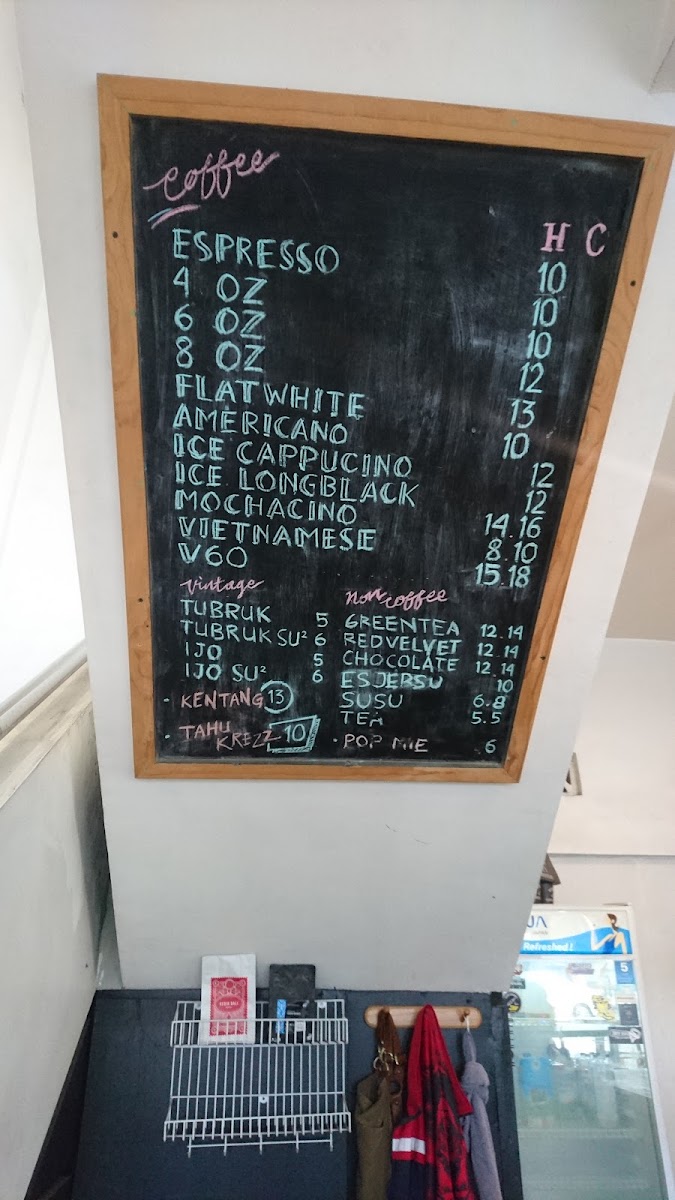 coffee
H C
ESPRESSO 10
4 OZ 10
6 OZ 10
8 OZ 12
FLATWHITE 13
AMERICANO 10
ICE CAPPUCINO 12
ICE LONGBLACK 12
MOCHACINO 14.16
VIETNAMESE 8.10
V60 15.18
vintage
TUBRUK 5
TUBRUK SU² 6
IJO 5
IJO SU² 6
· KENTANG 13
· TAHU KREZZ 10
non coffee
GREENTEA 12.14
REDVELVET 12.14
CHOCOLATE 12.14
ESJERSU 10
SUSU 6.8
TEA 5.5
· POP MIE 6
UA
Refreshed!
5